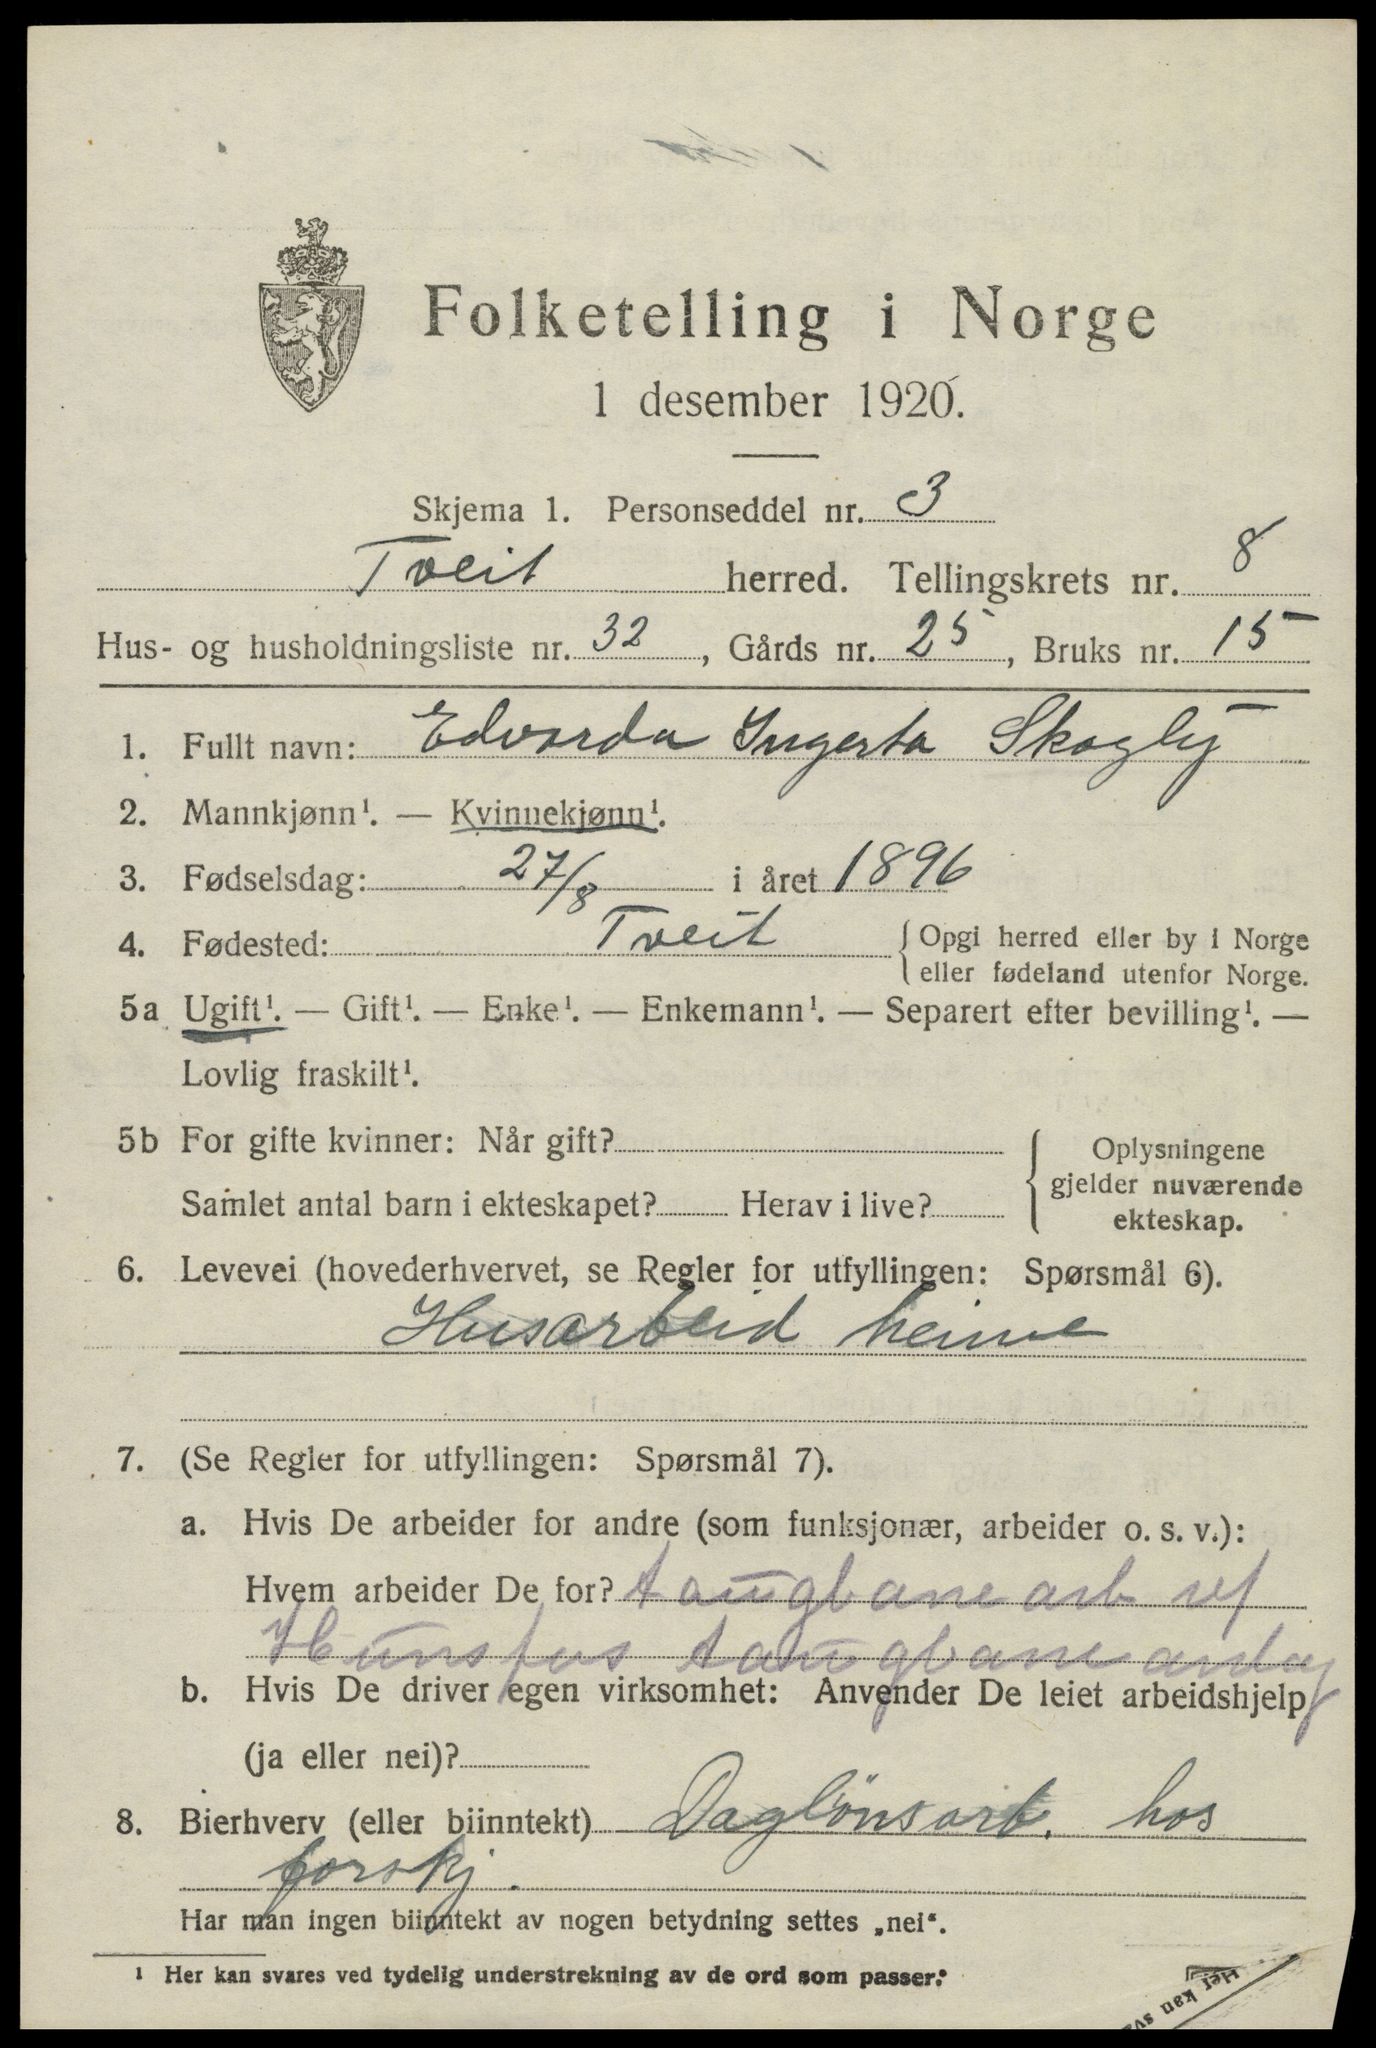 Folketelling i Norge
1 desember 1920.
Skjema 1. Personseddel nr. 3
Tveit herred. Tellingskrets nr. 8
Hus- og husholdningsliste nr. 32, Gårds nr. 25, Bruks nr. 15
1. Fullt navn: Edvarda Ingerta Skogly
2. Mannkjønn¹. — Kvinnekjønn¹.
3. Fødselsdag: 27/8 i året 1896
4. Fødested: Tveit { Opgi herred eller by i Norge
eller fødeland utenfor Norge.
5a Ugift¹. — Gift¹. — Enke¹. — Enkemann¹. — Separert efter bevilling¹. —
Lovlig fraskilt¹.
5b For gifte kvinner: Når gift?
Samlet antal barn i ekteskapet? Herav i live?
{ Oplysningene
gjelder nuværende
ekteskap.
6. Levevei (hovederhvervet, se Regler for utfyllingen: Spørsmål 6).
Husarbeid heime
7. (Se Regler for utfyllingen: Spørsmål 7).
a. Hvis De arbeider for andre (som funksjonær, arbeider o. s. v.):
Hvem arbeider De for? taugbane arb
Hunsfos taugbane
b. Hvis De driver egen virksomhet: Anvender De leiet arbeidshjelp
(ja eller nei)?
8. Bierhverv (eller biinntekt) Daglönsarb. hos
forskj.
Har man ingen biinntekt av nogen betydning settes „nei“.
¹ Her kan svares ved tydelig understrekning av de ord som passer.
Her kan sva